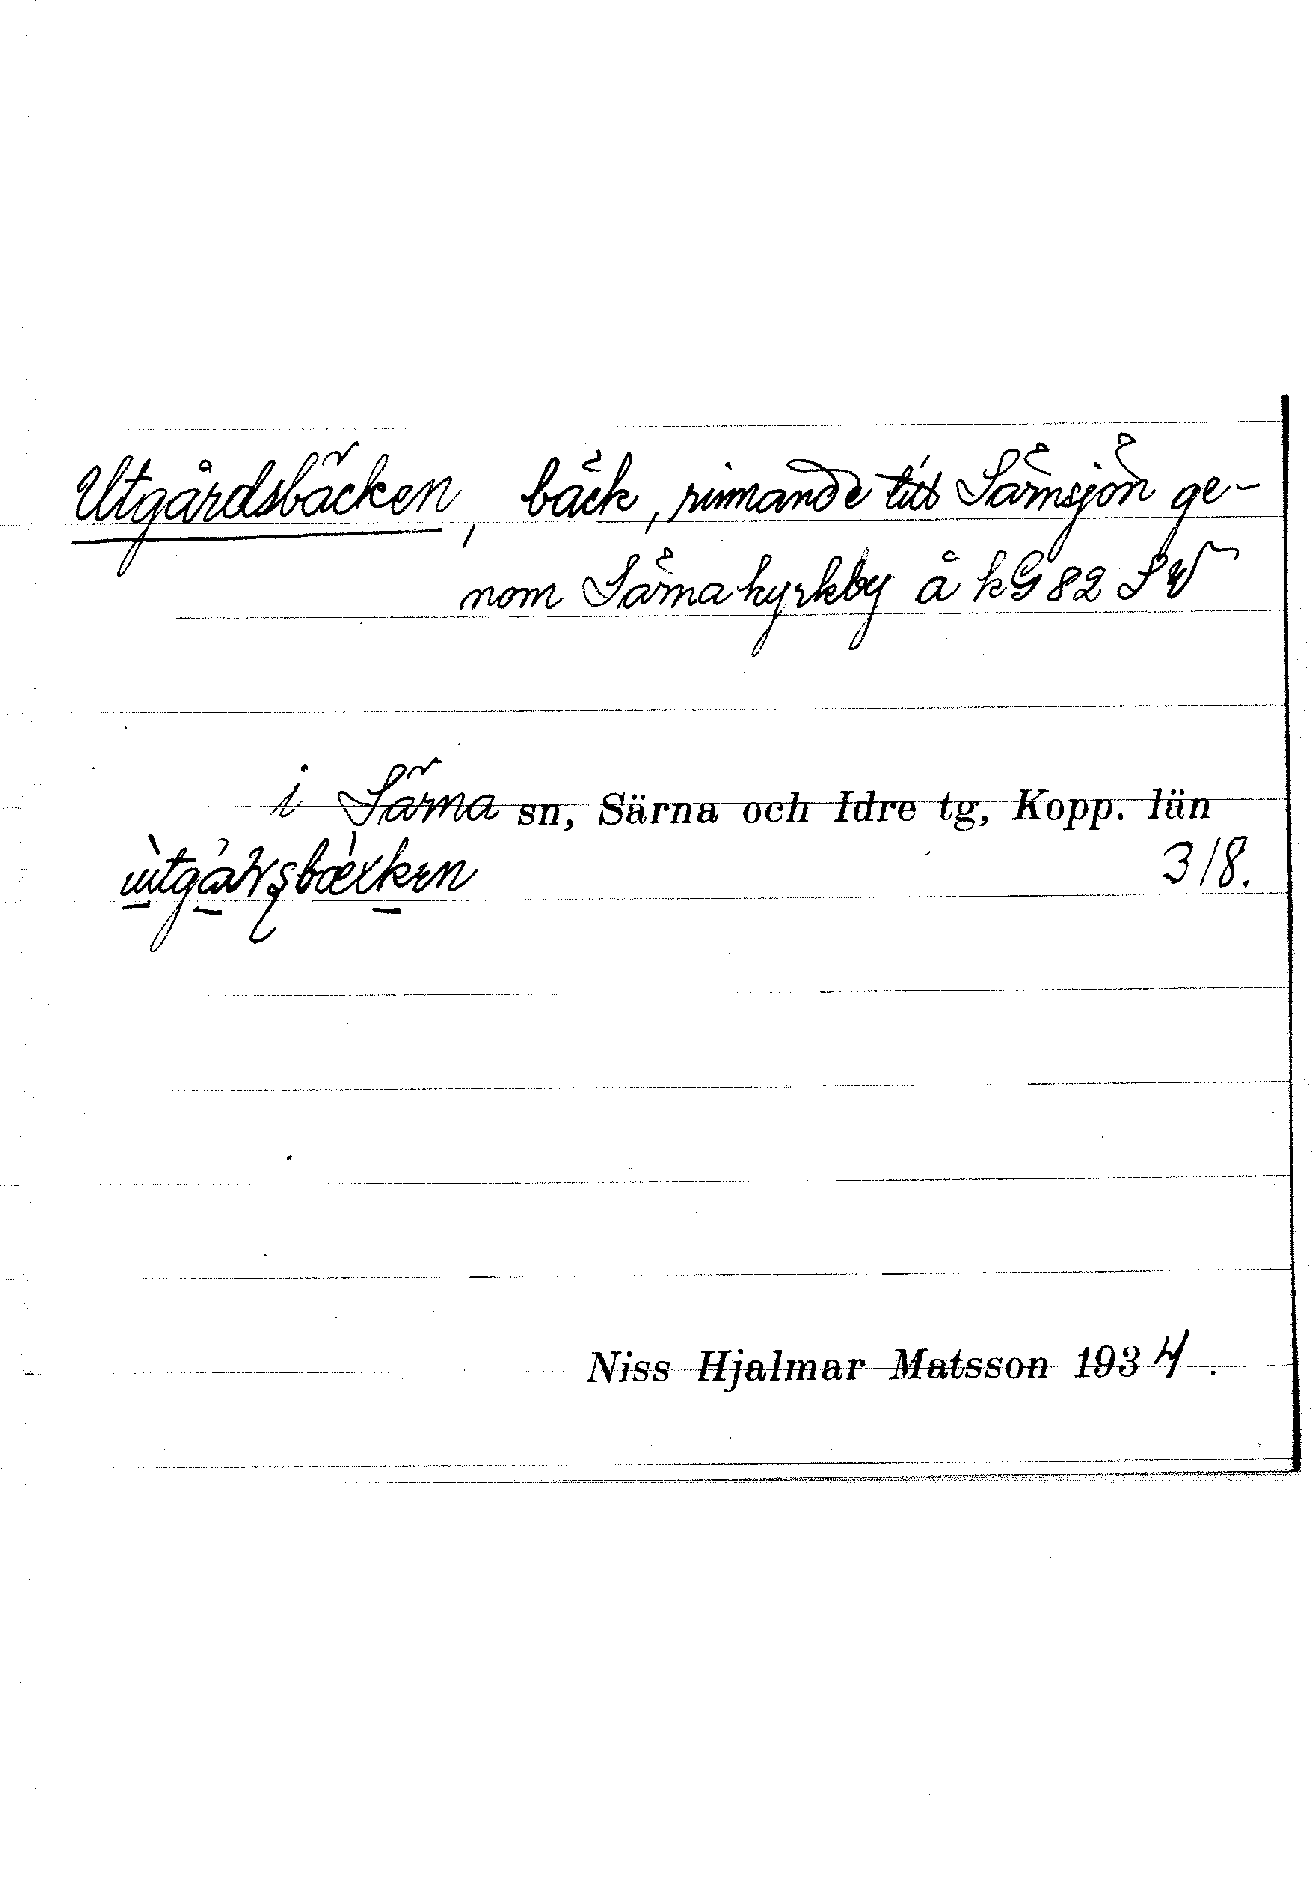 Utgårdsbäcken, bäck, rinnande till Särnsjön ge-
nom Särna kyrkby å kG 82 SW
i Särna sn, Särna och Idre tg, Kopp. län
3/8.
Niss Hjalmar Matsson 1934.